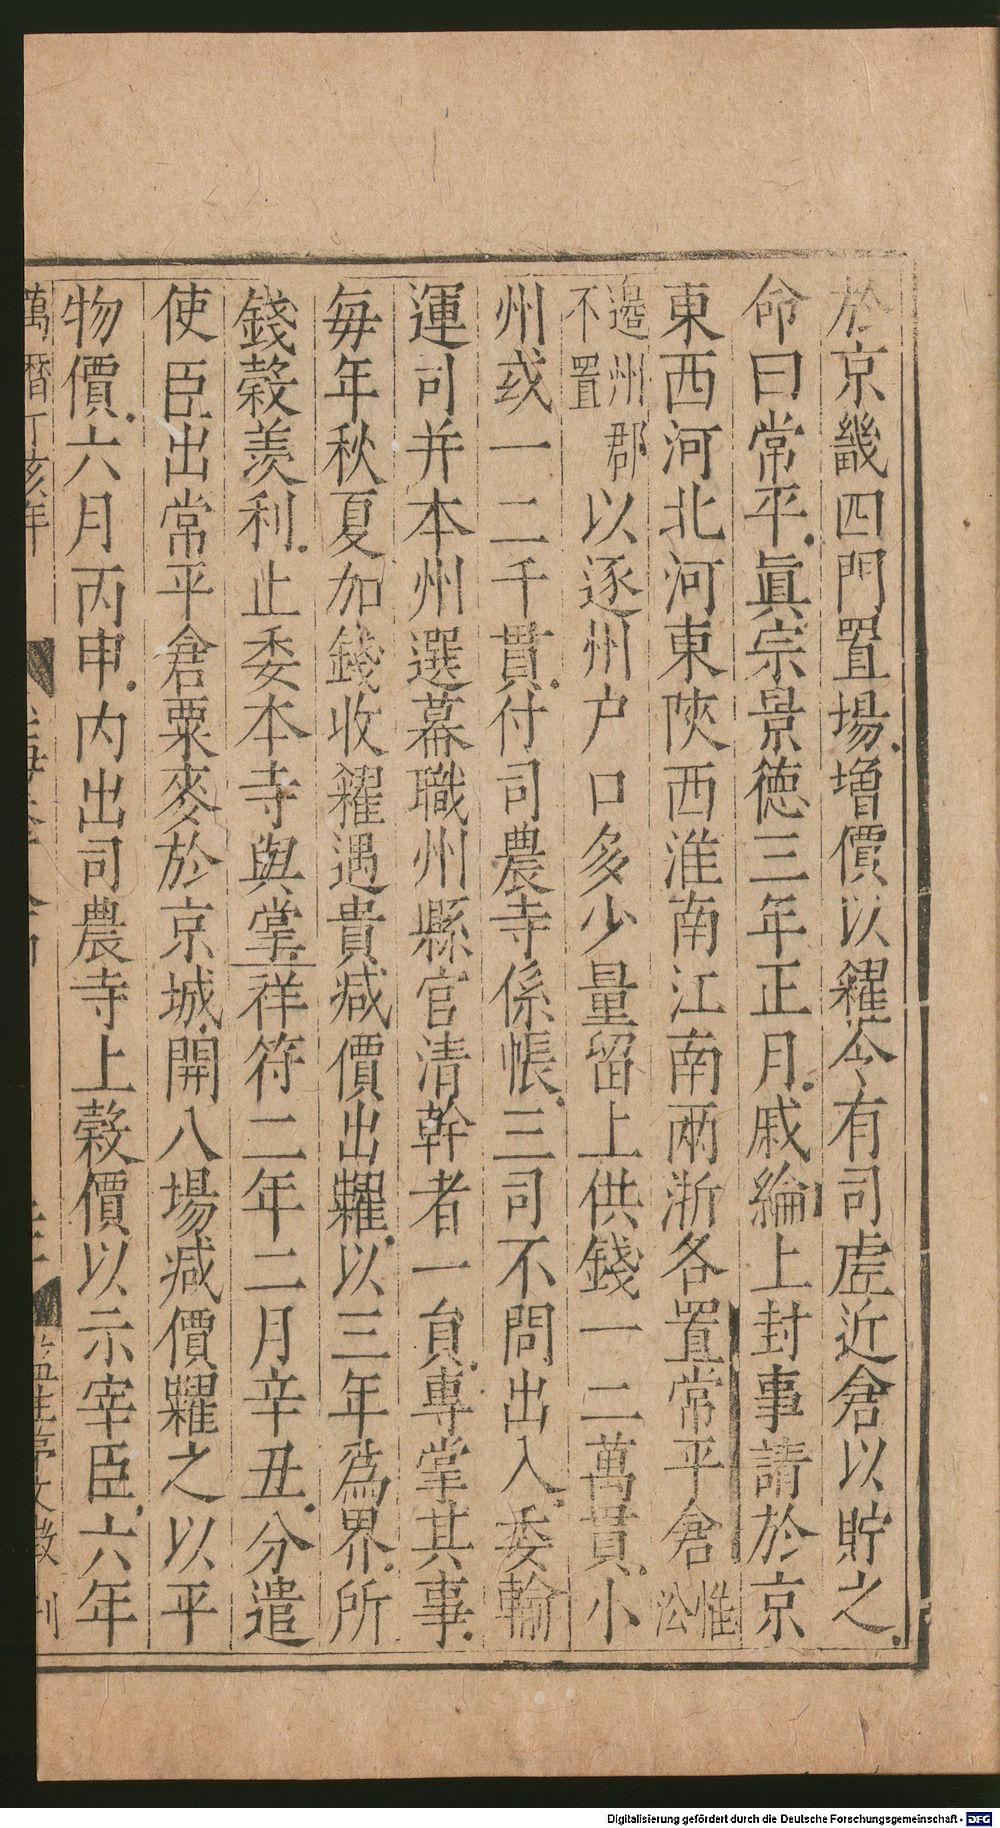 於京畿四門置場增價以糴令有司虗近倉以貯之
命曰常平眞宗景德三年正月戚綸上封事請於京
東西河北河東陝西淮南江南兩浙各置常平倉惟㳂
邊州郡不置以逐州户口多少量留上供錢一二萬貫小
州或一二千貫付司農寺係帳三司不問出入委輸
運司并本州選幕職州縣官清幹者一貟專掌其事
每年秋夏加錢收糴遇貴减價出糶以三年爲界所
錢穀羡利止委本寺與掌祥符二年二月辛丑分遣
使臣出常平倉粟麥於京城開八場减價糶之以平
物價六月丙申内出司農寺上穀價以示宰臣六年
萬曆丁亥年
監生
刊
Digitalisierung gefördert durch die Deutsche Forschungsgemeinschaft - DFG